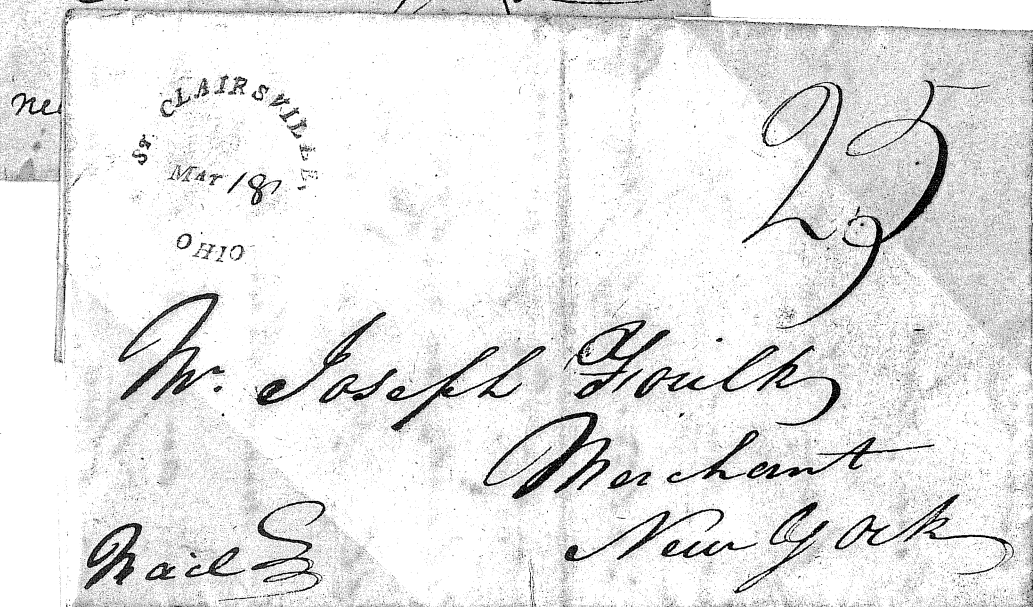 ne
ST CLAIRSVILLE,
MAY 18
OHIO
25
Mr. Joseph Foulk
Merchant
New York
Mail